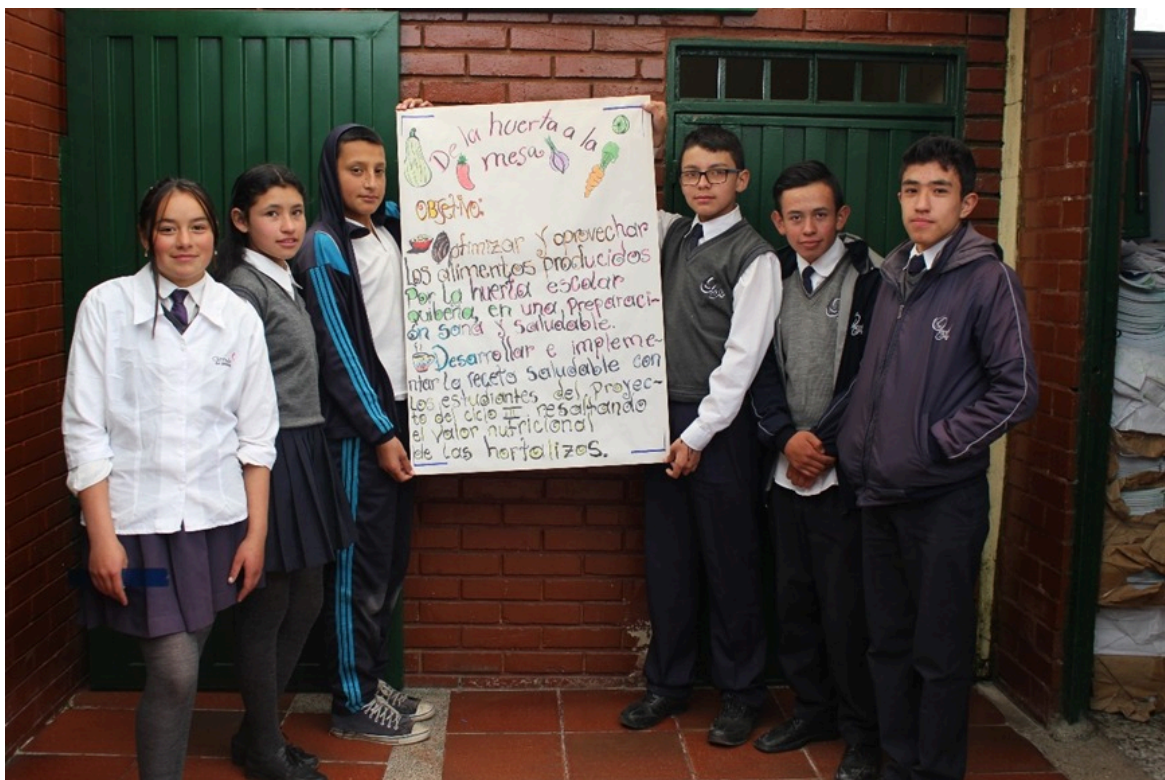 De la huerta a la
mesa
Objetivo:
optimizar y aprovechar
los alimentos producidos
Por la huerta escolar
quibeña, en una, preparaci-
ón sana y saludable.
Desarrollar e impleme-
ntar la receta saludable con
los estudiantes del Proyec-
to del ciclo III resaltando
el valor nutricional
de las hortalizas.